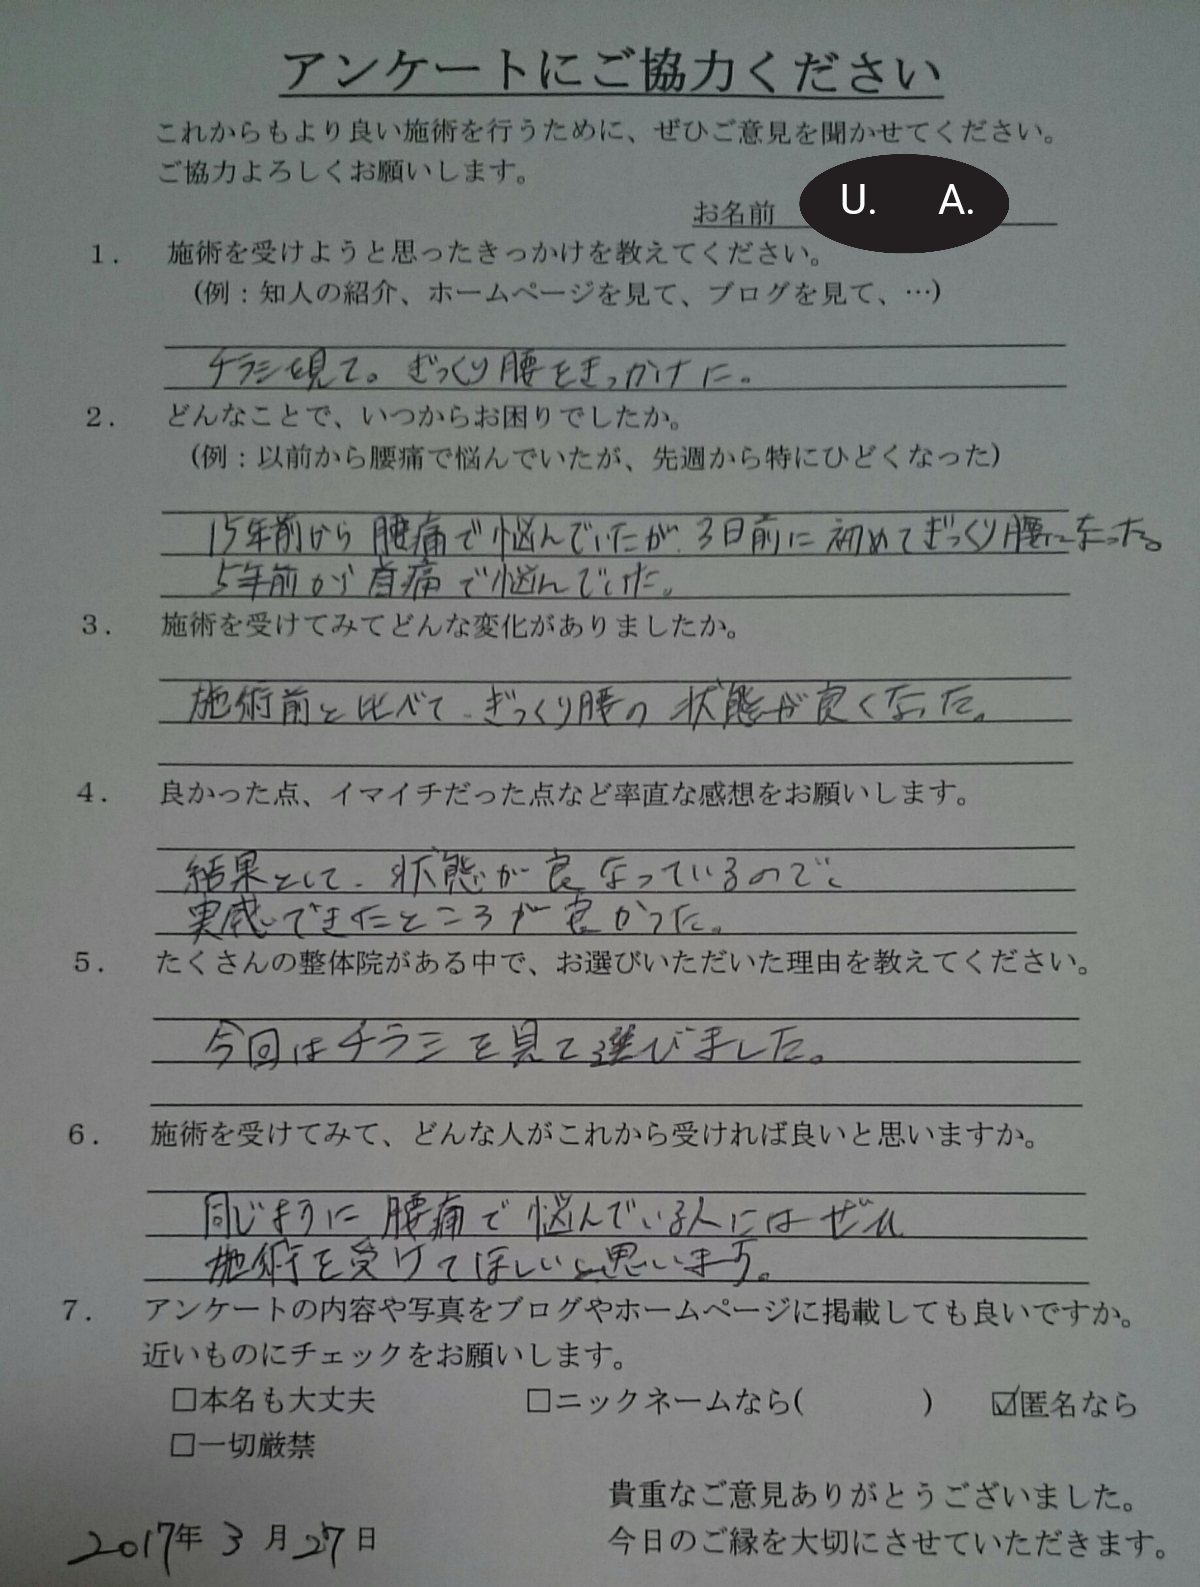 アンケートにご協力ください
これからもより良い施術を行うために、ぜひご意見を聞かせてください。
ご協力よろしくお願いします。
お名前 U. A.
1. 施術を受けようと思ったきっかけを教えてください。
(例:知人の紹介、ホームページを見て、ブログを見て、…)
チラシを見て。ぎっくり腰をきっかけに。
2. どんなことで、いつからお困りでしたか。
(例:以前から腰痛で悩んでいたが、先週から特にひどくなった)
15年前から腰痛で悩んでいたが、3日前に初めてぎっくり腰になった。
5年前から首痛で悩んでいた。
3. 施術を受けてみてどんな変化がありましたか。
施術前と比べて、ぎっくり腰の状態が良くなった。
4. 良かった点、イマイチだった点など率直な感想をお願いします。
結果として、状態が良なっているので、
実感できたところが良かった。
5. たくさんの整体院がある中で、お選びいただいた理由を教えてください。
今回はチラシを見て選びました。
6. 施術を受けてみて、どんな人がこれから受ければ良いと思いますか。
同じように腰痛で悩んでいる人にはぜひ
施術を受けてほしいと思います。
7. アンケートの内容や写真をブログやホームページに掲載しても良いですか。
近いものにチェックをお願いします。
□本名も大丈夫 □ニックネームなら( ) ☑匿名なら
□一切厳禁
貴重なご意見ありがとうございました。
2017年 3月27日 今日のご縁を大切にさせていただきます。